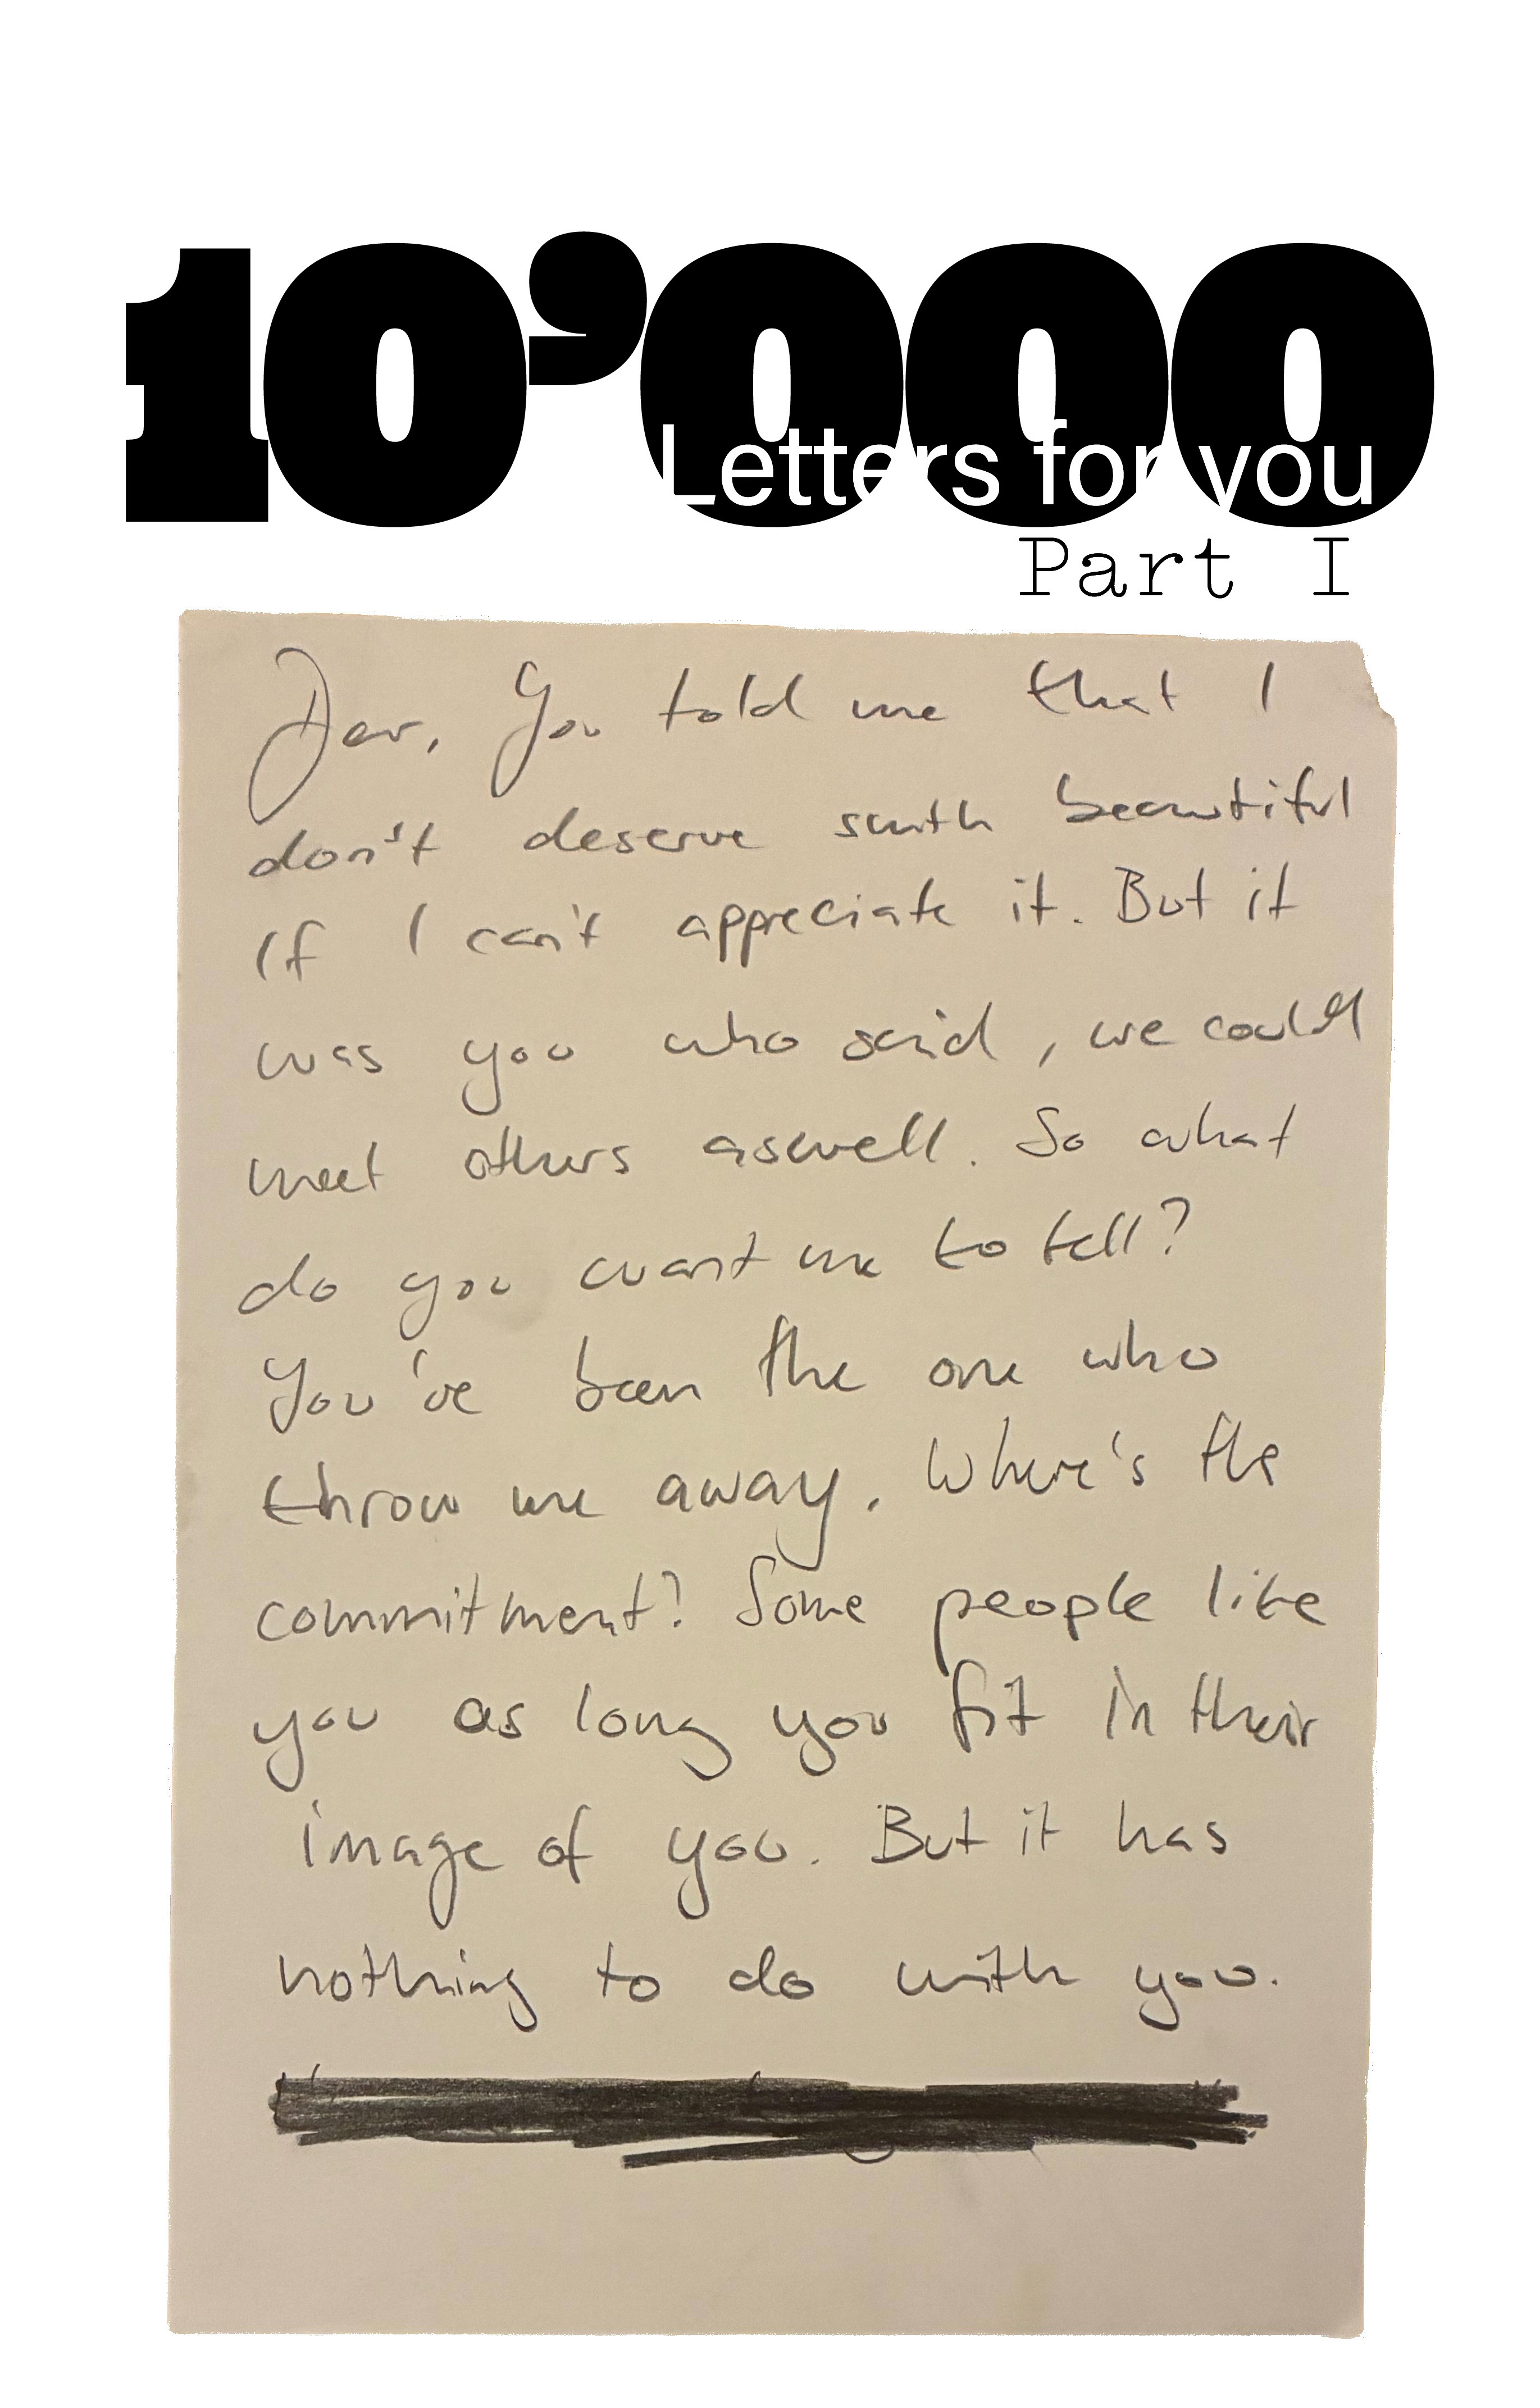 10’000
Letters for you
Part I
Dear, You told me that I
don't deserve smth beautiful
If I can't appreciate it. But it
was you who said, we could
meet others aswell. So what
do you want me to tell?
You've been the one who
throw me away. Where's the
commitment? Some people like
you as long you fit in their
image of you. But it has
nothing to do with you.